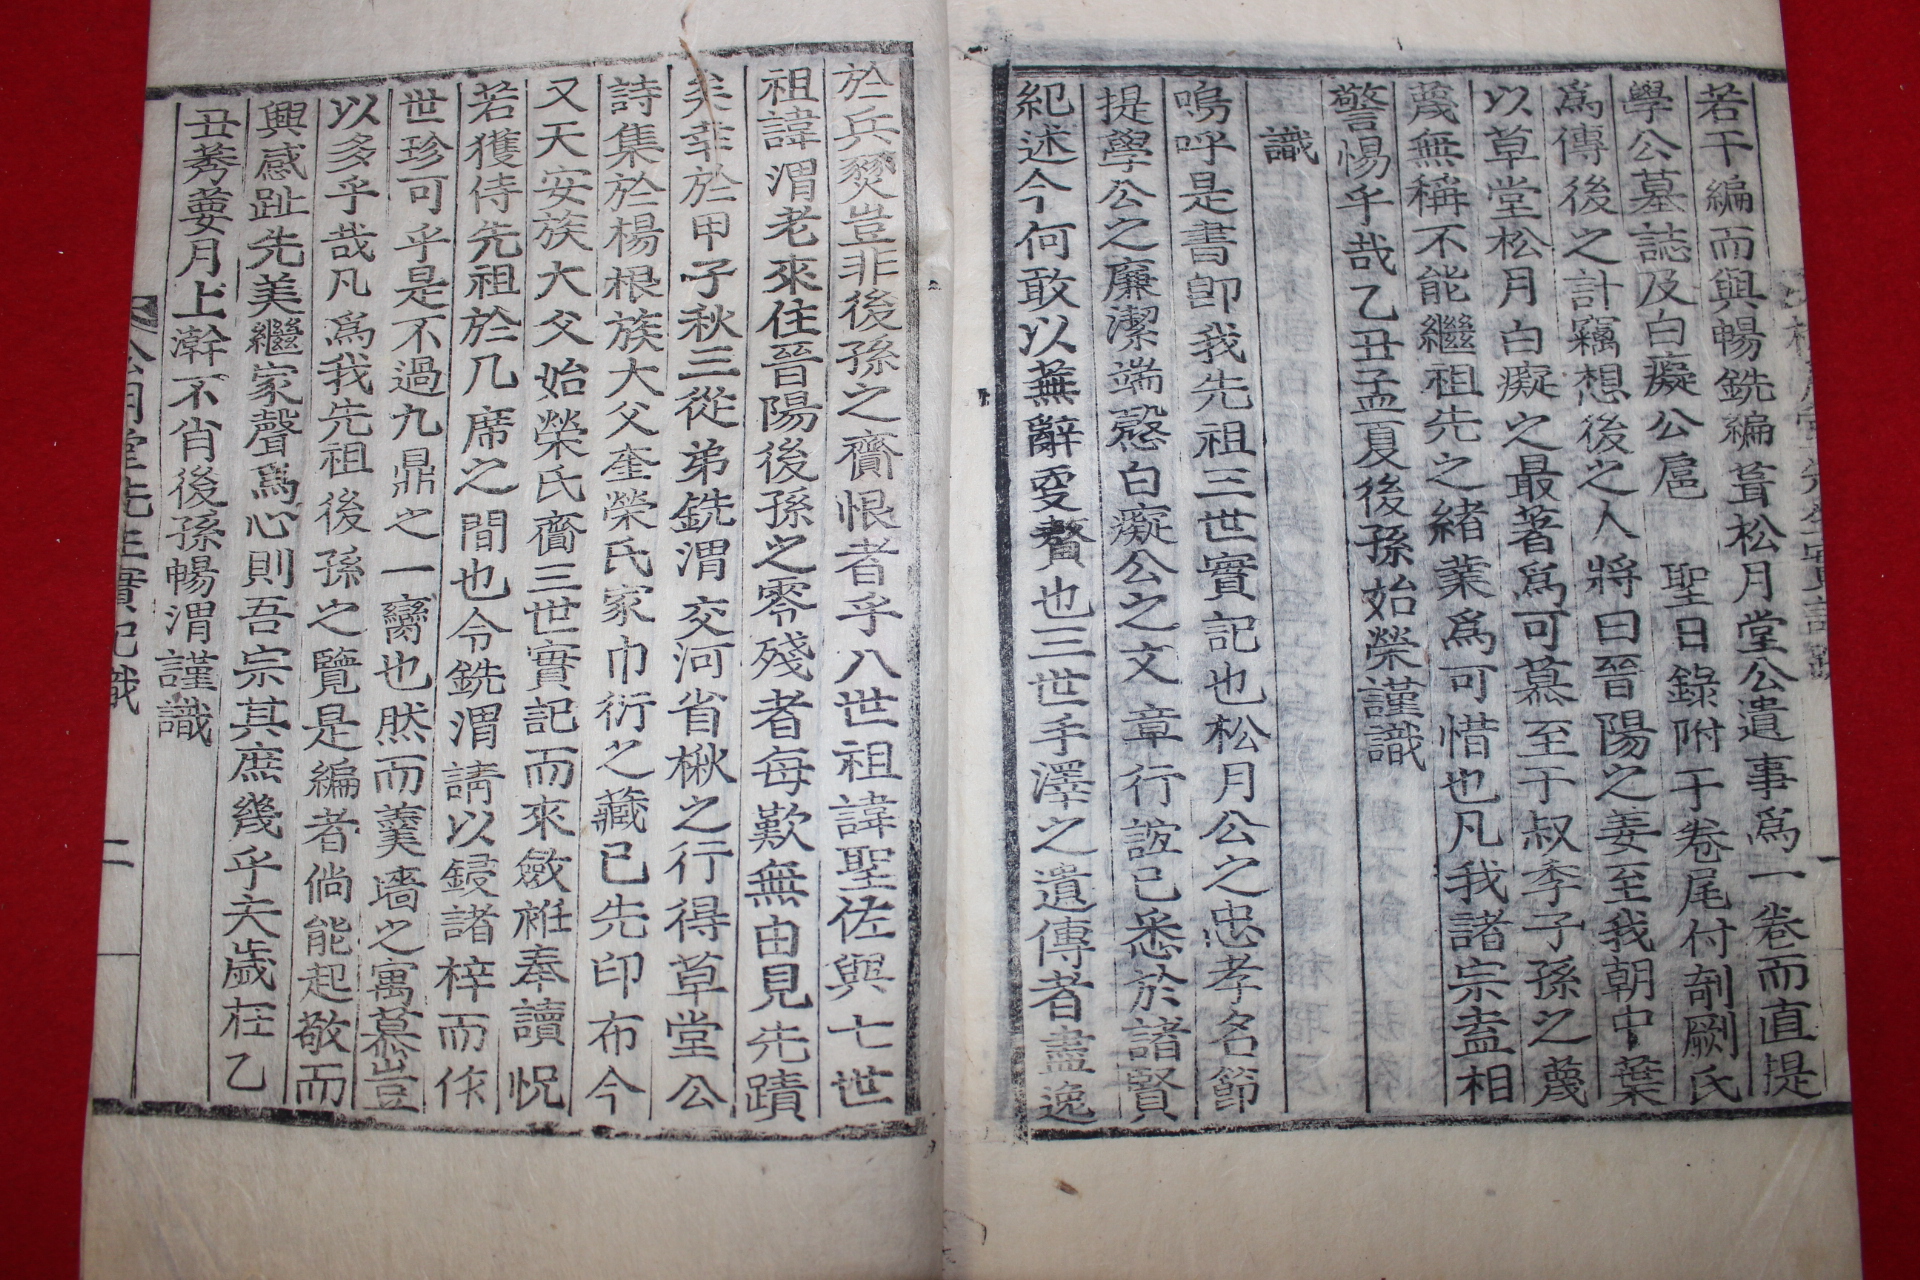 若干編而與暢銑編葺松月堂公遺事爲一卷而直提
學公墓誌及白癡公扈 聖日錄附于卷尾付剞劂氏
爲傳後之計竊想後之人將曰晉陽之姜至我朝中葉
以草堂松月白癡之最著爲可慕至于叔季子孫之蔑
蔑無稱不能繼祖先之緖業爲可惜也凡我諸宗盍相
警惕乎哉乙丑孟夏後孫始榮謹識
識
嗚呼是書卽我先祖三世實記也松月公之忠孝名節
提學公之廉潔端慤白癡公之文章行誼已悉於諸賢
紀述今何敢以蕪辭耍贅也三世手澤之遺傳者盡逸
於兵燹豈非後孫之齎恨者乎八世祖諱聖佐與七世
祖諱渭老來住晉陽後孫之零殘者每歎無由見先蹟
矣幸於甲子秋三從弟銑渭交河省楸之行得草堂公
詩集於楊根族大父奎榮氏家巾衍之藏已先印布今
又天安族大父始榮氏齎三世實記而來斂袵奉讀怳
若獲侍先祖於几席之間也令銑渭請以鋟諸梓而作
世珍可乎是不過九鼎之一臠也然而羹墻之寓慕豈
以多乎哉凡爲我先祖後孫之覽是編者倘能起敬而
興感趾先美繼家聲爲心則吾宗其庶幾乎夫歲在乙
丑莠葽月上澣不肖後孫暢渭謹識
松月堂先生實記 識
二